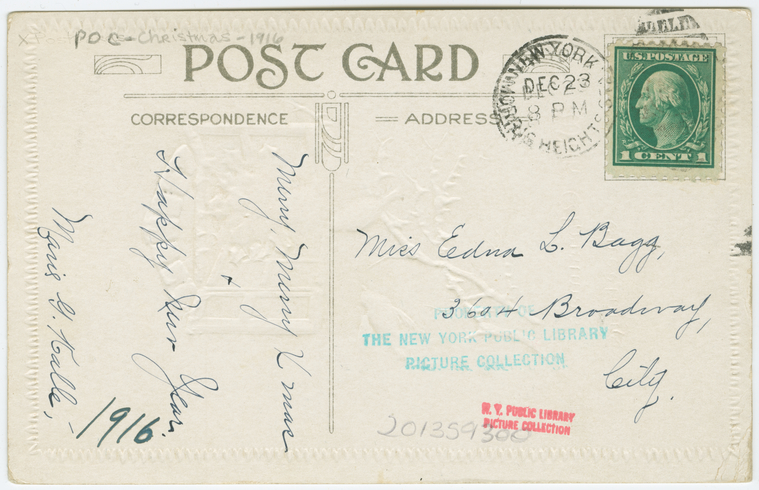 POC - Christmas - 1916
POST CARD
CORRESPONDENCE
ADDRESS
NEW YORK
DEC 23
8 PM
HEIGHTS
U.S. POSTAGE
1 CENT 1
Merry, Merry Xmas
+
Happy New Year.
1916
Miss Edna L. Bagg,
3604 Broadway,
City.
PROPERTY OF
THE NEW YORK PUBLIC LIBRARY
PICTURE COLLECTION
N. Y. PUBLIC LIBRARY
PICTURE COLLECTION
201359300